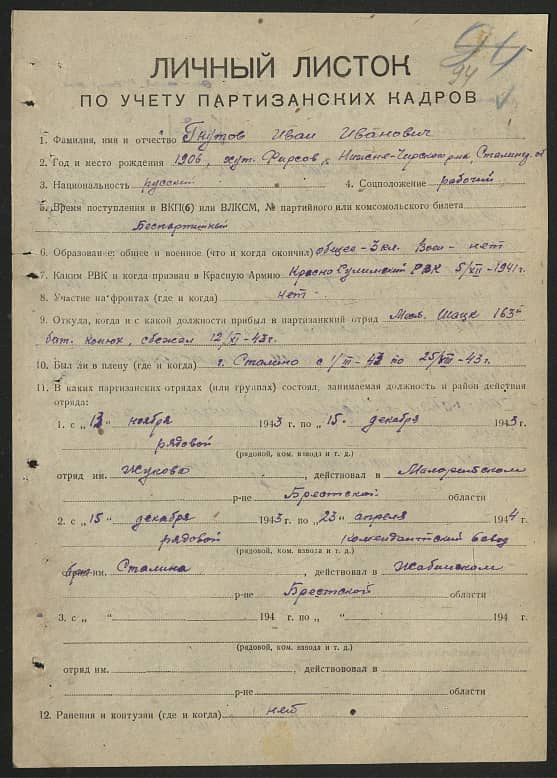 94
94
ЛИЧНЫЙ ЛИСТОК
ПО УЧЕТУ ПАРТИЗАНСКИХ КАДРОВ
1. Фамилия, имя и отчество Гнутов Иван Иванович
2. Год и место рождения 1906, хут. Фирсов, Нижне-Чирский р-к, Сталингр. об
3. Национальность русский 4. Соцположение рабочий
5. Время поступления в ВКП(б) или ВЛКСМ, № партийного или комсомольского билета
Беспартийный
6. Образование: общее и военное (что и когда окончил) общее - 3 кл. Воен - нет
7. Каким РВК и когда призван в Красную Армию Красно Сулинский РВК 5/XII-1941 г.
8. Участие на фронтах (где и когда) нет
9. Откуда, когда и с какой должности прибыл в партизанский отряд Шацк 163й
бат. конюх, сбежал 12/XI-43 г.
10. Был ли в плену (где и когда) г. Сталино с 1/III-43 по 25/VIII-43 г.
11. В каких партизанских отрядах (или группах) состоял, занимаемая должность и район действия
отряда:
1. с „13" ноября 1943 г. по „15" декабря 1943 г.
рядовой
(рядовой, ком. взвода и т. д.)
отряд им. Жукова, действовал в Малоритском
р-не Брестской области
2. с „15" декабря 1943 г. по „23" апреля 1944 г.
рядовой комендантский взвод
(рядовой, ком. взвода и т. д.)
им. Сталина, действовал в Жабинском
р-не Брестской области
3. с „ " 194 г. по „ " 194 г.
(рядовой, ком. взвода и т. д.)
отряд им. , действововал в
р-не области
12. Ранения и контузии (где и когда) нет